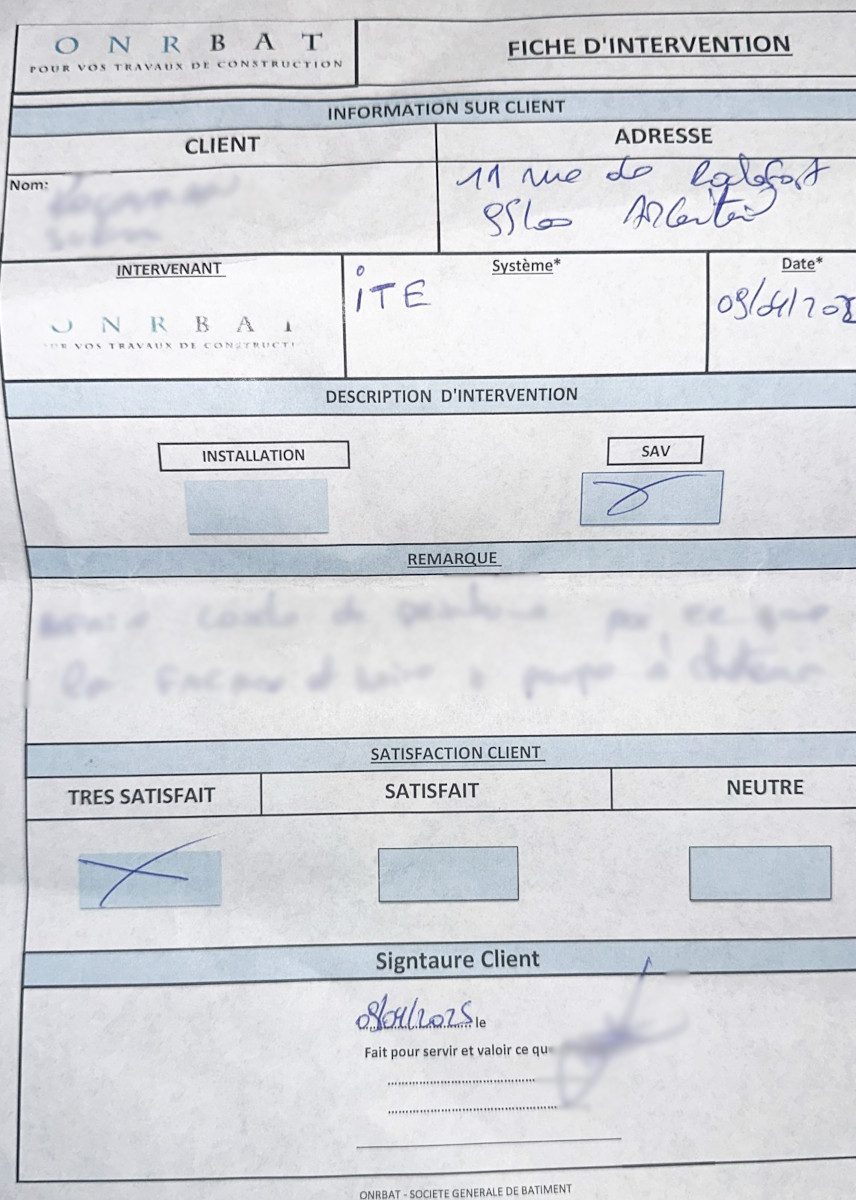 ONRBAT
POUR VOS TRAVAUX DE CONSTRUCTION
FICHE D'INTERVENTION
INFORMATION SUR CLIENT
CLIENT
ADRESSE
Nom:
11 rue de
95100 Argenteuil
INTERVENANT
Système*
Date*
ITE
09/04/202
ONRBA
VOS TRAVAUX DE CONSTRUCTI
DESCRIPTION D'INTERVENTION
INSTALLATION
SAV
REMARQUE
SATISFACTION CLIENT
TRES SATISFAIT
SATISFAIT
NEUTRE
Signtaure Client
09/04/2025 le
Fait pour servir et valoir ce qu
ONRBAT - SOCIETE GENERALE DE BATIMENT